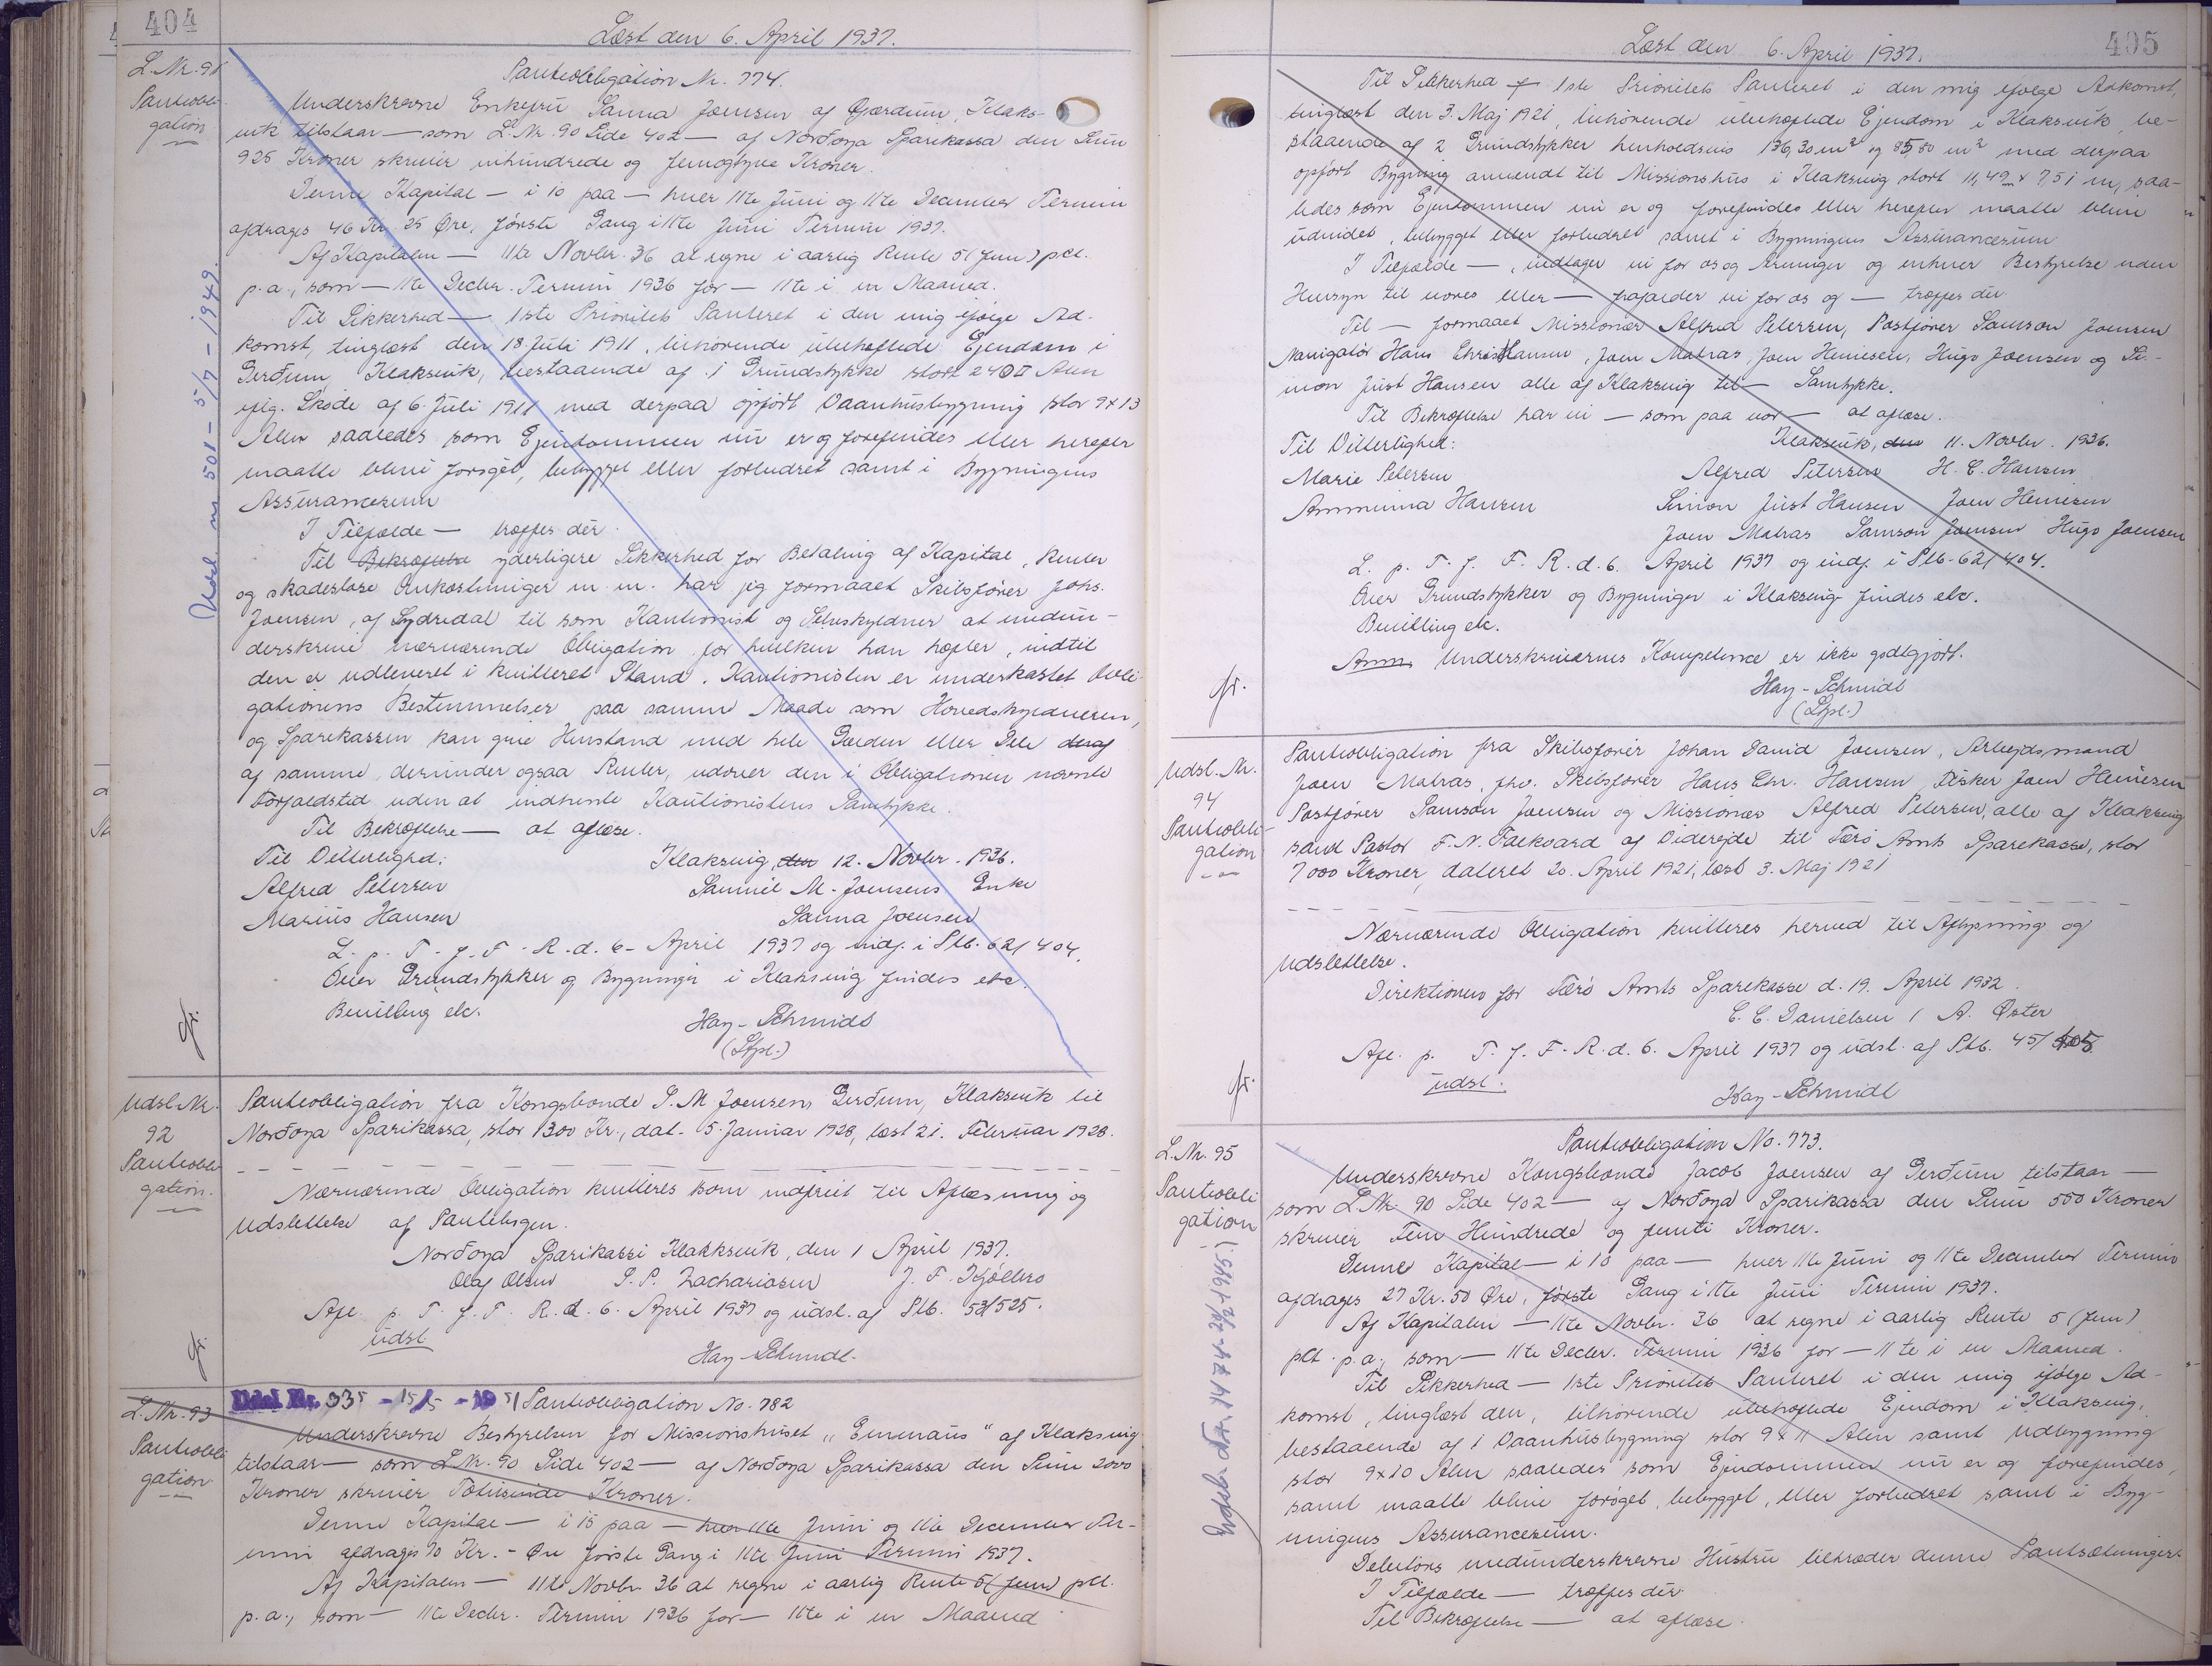 404
Læst den 6. April 1937.
L. Nr. 91
Pantobli-
gation
Pantobligation Nr. 774.
Underskrevne Enkefru Sanna Joensen af Gjærdum, Klaks-
vik tilstaar — som L. Nr. 90 Side 402 — af Norðoya Sparikassa den Sum
925 Kroner skriver nihundrede og femogtyve Kroner.
Denne Kapital — i 10 paa — hver 11te Juni og 11te December Termin
afdrages 46 Kr. 25 Øre, første Gang i 11te Juni Termin 1937.
Af Kapitalen — 11te Novbr. 36 at regne i aarlig Rente 5 (fem) pct.
p.a., som — 11te Decbr. Termin 1936 for — 11te i en Maaned.
Til Sikkerhed — 1ste Prioritets Panteret i den mig ifølge Ad-
komst, tinglæst den 18 Juli 1911, tilhørende ubehæftede Ejendom i
Gerðum, Klaksvik, bestaaende af 1 Grundstykke stort 240 □ Alen
iflg. Skøde af 6. Juli 1911 med derpaa opført Vaanhusbygning stor 9 x 13
Alen saaledes som Ejendommen nu er og forefindes eller herefter
maatte blive forøget, bebygget eller forbedret samt i Bygningens
Assurancesum
I Tilfælde — træffes dér.
Til Bekræftelse yderligere Sikkerhed for Betaling af Kapital, Renter
og skadesløse Omkostninger m. m. har jeg formaaet Skibsfører Johs.
Joensen, af Sydredal til som Kautionist og Selvskyldner at medun-
derskrive nærværende Obligation for hvilken han hæfter, indtil
den er udleveret i kvitteret Stand. Kautionisten er underkastet Obli-
gationens Bestemmelser paa samme Maade som Hovedskyldneren,
og Sparekassen kan give Henstand med hele Gælden eller Dele deraf
af samme, derunder ogsaa Renter, udover den i Obligationen nævnte
Forfaldstid uden at indhente Kautionistens Samtykke.
Til Bekræftelse — at aflæse.
Til Vitterlighed: Klaksvig, den 12. Novbr. 1936.
Alfred Petersen Samuel M. Joensens Enke
Marius Hansen Sanna Joensen
L. p. T. f. F. R. d. 6. April 1937 og indf. i Ptb. 62/404.
Over Grundstykker og Bygninger i Klaksvig findes etc.
Bevilling etc.
Hay-Schmidt
(Stpl.)
fr.
Udsl. nr 501 – 5/7 – 1949.
Udsl. Nr.
92
Pantobli-
gation.
Pantobligation fra Kongsbonde S. M Joensens Gerðum, Klaksvik til
Norðoya Sparikassa, stor 1300 Kr., dat. 5. Januar 1928, læst 21. Februar 1928.
Nærværende Obligation kvitteres som indfriet til Aflæsning og
Udslettelse af Pantebogen.
Norðoya Sparikassi Klakksvik, den 1 April 1937.
Olaf Olsen P. P. Zachariasen J. F. Kjølbro
Afl. p. T. f. F. R. d. 6. April 1937 og udsl. af Ptb. 53/525.
udsl.
Hay-Schmidt.
fr.
L. Nr. 93
Pantobli-
gation
Udsl. Nr. 335 – 15/5 – 1951
Pantobligation No. 782
Underskrevne Bestyrelsen for Missionshuset „Emmaus" af Klaksvig
tilstaar — som L. Nr. 90 Side 402 — af Norðoya Sparikassa den Sum 2000
Kroner skriver Totusinde Kroner.
Denne Kapital — i 15 paa — hver 11te Juni og 11te December Ter-
min afdrages 70 Kr. - Øre første Gang i 11te Juni Termin 1937.
Af Kapitalen — 11te Novbr. 36 at regne i aarlig Rente 5 (fem) pct.
p.a., som — 11te Decbr. Termin 1936 for — 11te i en Maaned
405
Læst den 6. April 1937.
Til Sikkerhed f 1ste Prioritets Panteret i den mig ifølge Adkomst,
tinglæst den 3. Maj 1921, tilhørende ubehæftede Ejendom i Klaksvik, be-
staaende af 2 Grundstykker henholdsvis 136,30 m² og 85,80 m² med derpaa
opført Bygning anvendt til Missionshus i Klaksvig stort 11,49 x 7,51 m, saa-
ledes som Ejendommen nu er og forefindes eller herefter maatte blive
udvidet, bebygget eller forbedret samt i Bygningens Assurancesum
I Tilfælde —, vedtager vi for os og Arvinger og enhver Bestyrelse uden
Hensyn til vores eller — frafalder vi for os og — træffes dér
Til — formaaet Missionær Alfred Petersen, Postfører Samson Joensen
Navigatør Hans Chris Hansen, Joen Matras, Joen Heinesen, Hugo Joensen og Si-
mon Just Hansen alle af Klaksvig til — Samtykke.
Til Bekræftelse har vi — som paa vor — at aflæse.
Til Vitterlighed: Klaksvik, den 11. Novbr. 1936.
Marie Petersen Alfred Petersen H. C. Hansen
Ammina Hansen Simon Just Hansen Joen Heinesen
Joen Matras Samson Joensen Hugo Joensen
L. p. T. f. F. R. d. 6. April 1937 og indf. i Ptb. 62/404.
Over Grundstykker og Bygninger i Klaksvig findes etc.
Bevilling etc.
Anm. Underskrivernes Kompetence er ikke godtgjort.
Hay-Schmidt
(Stpl.)
fr.
Udsl. Nr.
94
Pantobli-
gation
Pantobligation fra Skibsfører Johan David Joensen, Arbejdsmand
Joen Matras, fhv. Skibsfører Hans Chr. Hansen, Fisker Joen Heinesen
Postfører Samson Joensen og Missionær Alfred Petersen, alle af Klaksvig
samt Pastor F. N. Falkvard af Viderejde til Færø Amts Sparekasse, stor
7000 Kroner, dateret 20. April 1921, læst 3. Maj 1921
Nærværende Obligation kvitteres herved til Aflysning og
Udslettelse.
Direktionen for Færø Amts Sparekasse d. 19. April 1932.
C. C. Danielsen / A. Øster
Afl. p. T. f. F. R. d. 6. April 1937 og udsl. af Ptb. 45/
udsl.
Hay-Schmidt
fr.
L. Nr. 95
Pantobli
gation
Pantobligation No. 773.
Underskrevne Kongsbonde Jacob Joensen af Gerðum tilstaar —
som L. Nr. 90 Side 402 — af Norðoya Sparikassa den Sum 550 Kroner
skriver Fem Hundrede og femti Kroner.
Denne Kapital — i 10 paa — hver 11te Juni og 11te December Termin
afdrages 27 Kr. 50 Øre, første Gang i 11te Juni Termin 1937.
Af Kapitalen — 11te Novbr. 36 at regne i aarlig Rente 5 (fem)
pct. p.a., som — 11te Decbr. Termin 1936 for — 11te i en Maaned.
Til Sikkerhed — 1ste Prioritets Panteret i den mig ifølge Ad-
komst, tinglæst den, tilhørende ubehæftede Ejendom i Klaksvig,
bestaaende af 1 Vaanhusbygning stor 9 x 11 Alen samt Udbygning
stor 9 x 10 Alen saaledes som Ejendommen nu er og forefindes,
samt maatte blive forøget, bebygget, eller forbedret samt i Byg-
ningens Assurancesum.
Debitors medunderskrevne Hustru tiltræder denne Pantsætningen
I Tilfælde — træffes dér
Til Bekræftelse — at aflæse.